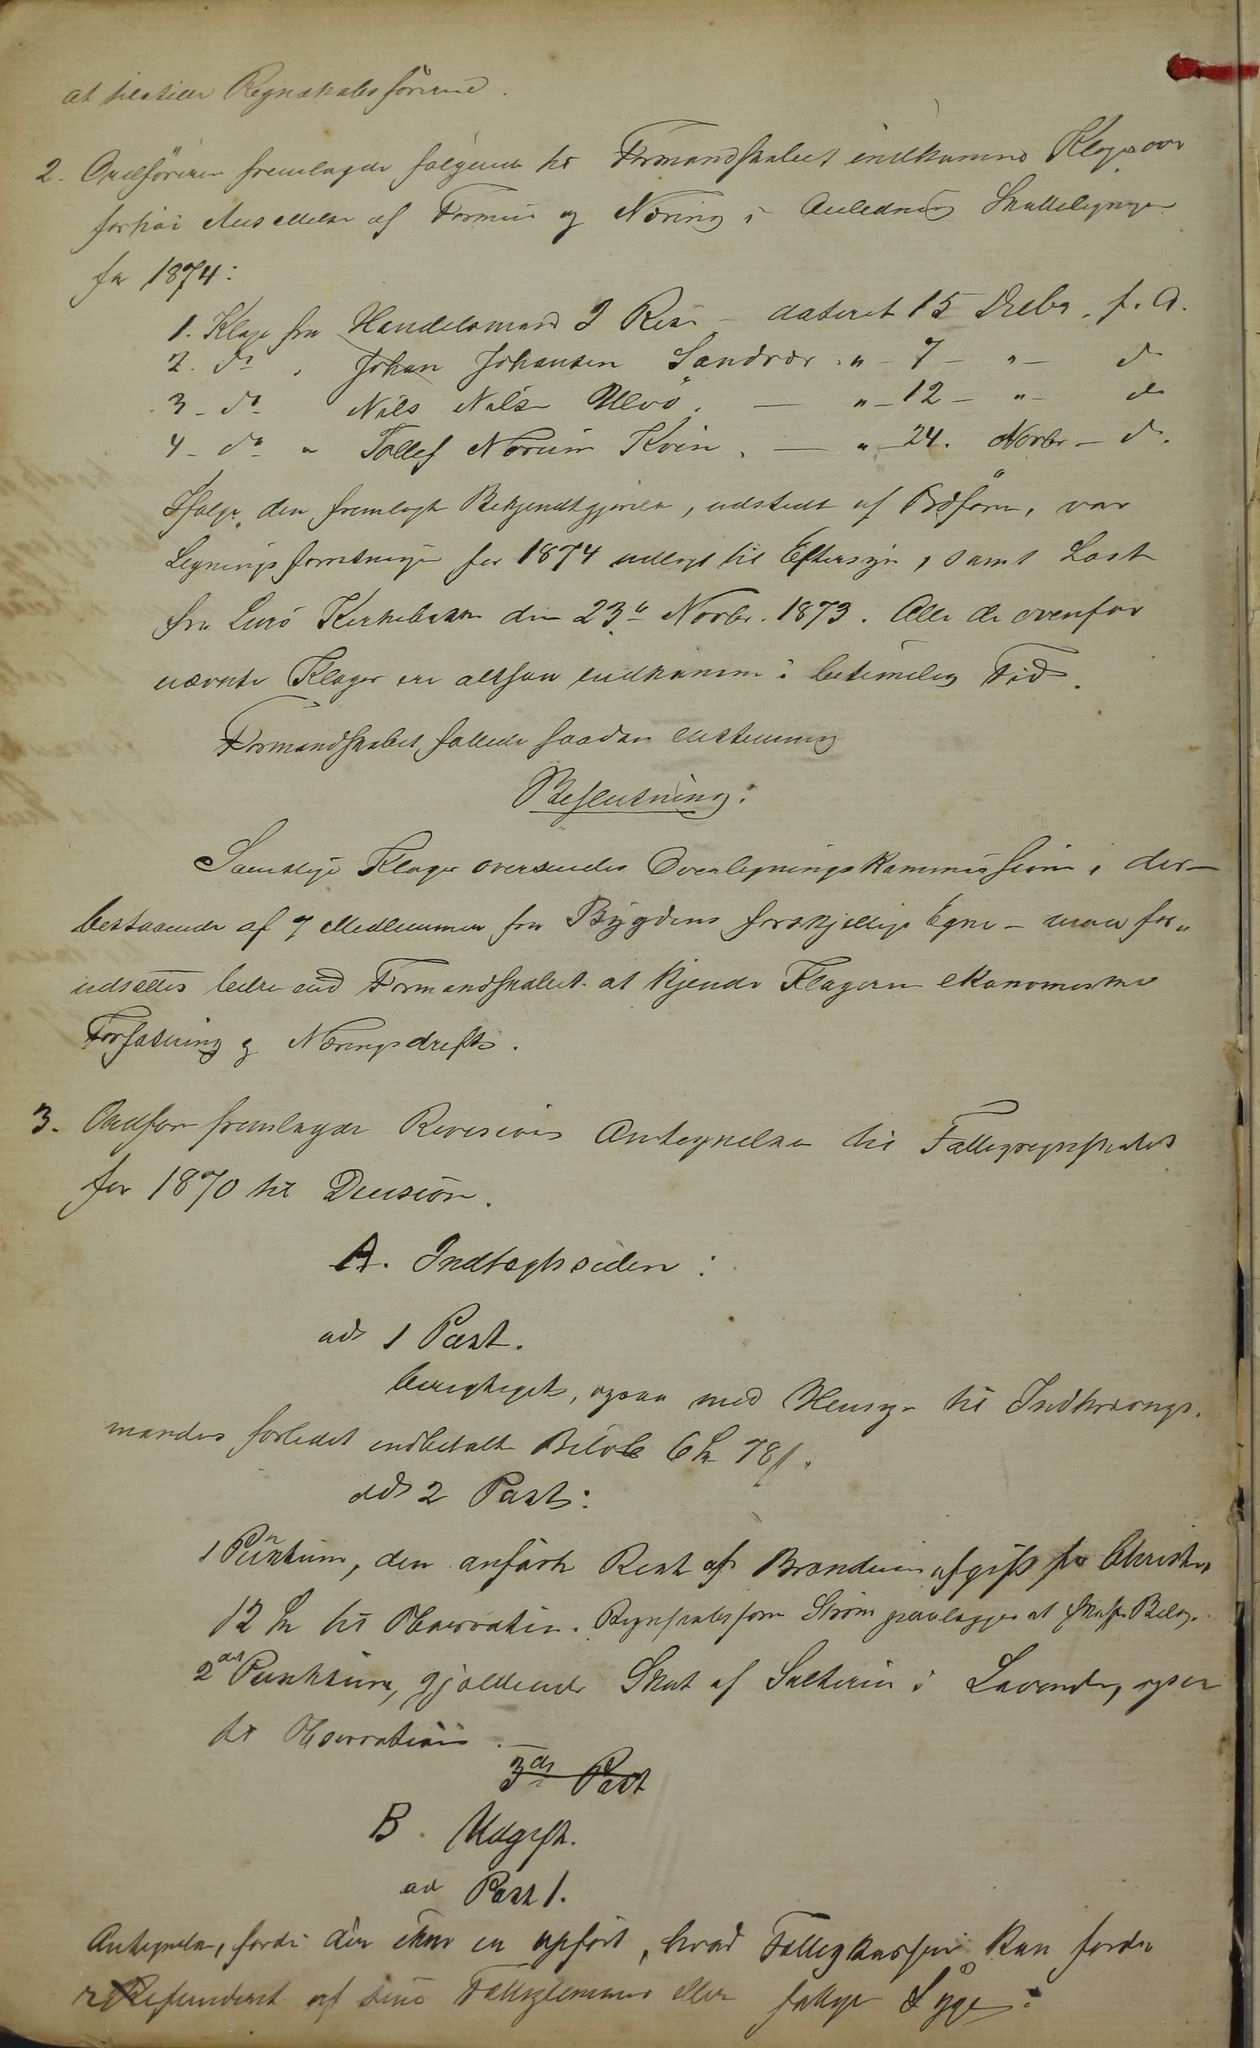 at tilstille Regnskabsförerne.
2. Ordföreren fremlagde følgende til Formandskabet indkomne Klager over
for høi Ansættelse af Formue og Næring i Anledning Skatteligningen
for 1874:
1. Klage fra Handelsmand J Rein – dateret 15 Decbr. f. A.
2. do „ Johan Johansen Sandvær „ – 7 – „ – do
3 – do Nils Nilsen Ulvö. – „ – 12 – „ – do
4 – do „ Tollef Kvin. – „ – 24. Novbr – do.
Ifølge den fremlagte Bekjendtgjørelse, udstedt af Ordføren, var
Ligningsforretningen for 1874 udlagt til Eftersyn, samt Læst
fra Lurö Kirkebakke den 23de Novbr. 1873. Alle de ovenfor
nævnte Klager ere altsaa indkomne i betimelig Tid.
Formandskabet fattede saadan enstemmig
Beslutning:
Samtlige Klager oversendes Overligningskommissionen, der –
bestaaende af 7 Medlemmer fra Bygdens forskjellige Egne – maa for„
udsættes bedre end Formandskabet at kjende Klagerne ekonomiske
Forfatning og Næringsdrift.
3. Ordfører fremlagde Revisions Antegnelser til Fattigregnskabet
for 1870 til Decision.
A. Indtægtssiden:
ad 1 Post.
berigtiget, ogsaa med Hensyn til Indkrævnings.
mandens forledet indbetalte Beløb 6 78 ß.
ad 2 Post:
1 Punktum, den anførte Rest af Brændeviinsafgift fra
12 til Observation. Regnskabsfører Strøm paalægges at skaffe Belæg.
2det Punktum, gjældende Skat af Salterier i Lovunden, ogsaa
til Observation.
3die Post
B. Udgift.
ad Post 1.
Antegnelse, fordi der ikke er opfört, hvad Fattigkassen kan fordre
Refunderet af sine Fattiglemmer eller fattige Syge: